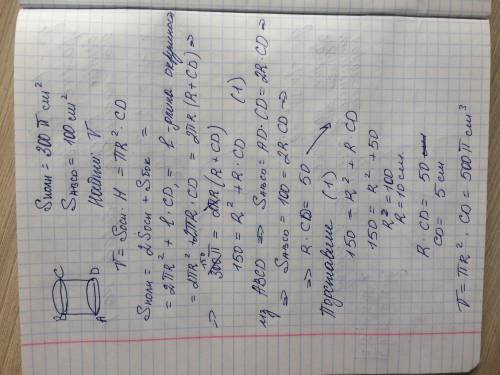 B C
A D
Sполн = 300π см²
SABCD = 100 см²
Найти: V
V = Sосн · H = πR² · CD
Sполн = 2Sосн + Sбок =
= 2πR² + l · CD, = l - длина окружности
= 2πR² + 2πR · CD = 2πR (R + CD) ⇒
⇒ 150
300π = 2πR (R + CD)
150 = R² + R · CD (1)
из ABCD ⇒ SABCD = AD · CD = 2R · CD ⇒
⇒ SABCD = 100 = 2R · CD ⇒
⇒ R · CD = 50
Подставим (1)
150 = R² + R · CD
150 = R² + 50
R² = 100
R = 10 см.
R · CD = 50
CD = 5 см
V = πR² · CD = 500π см³